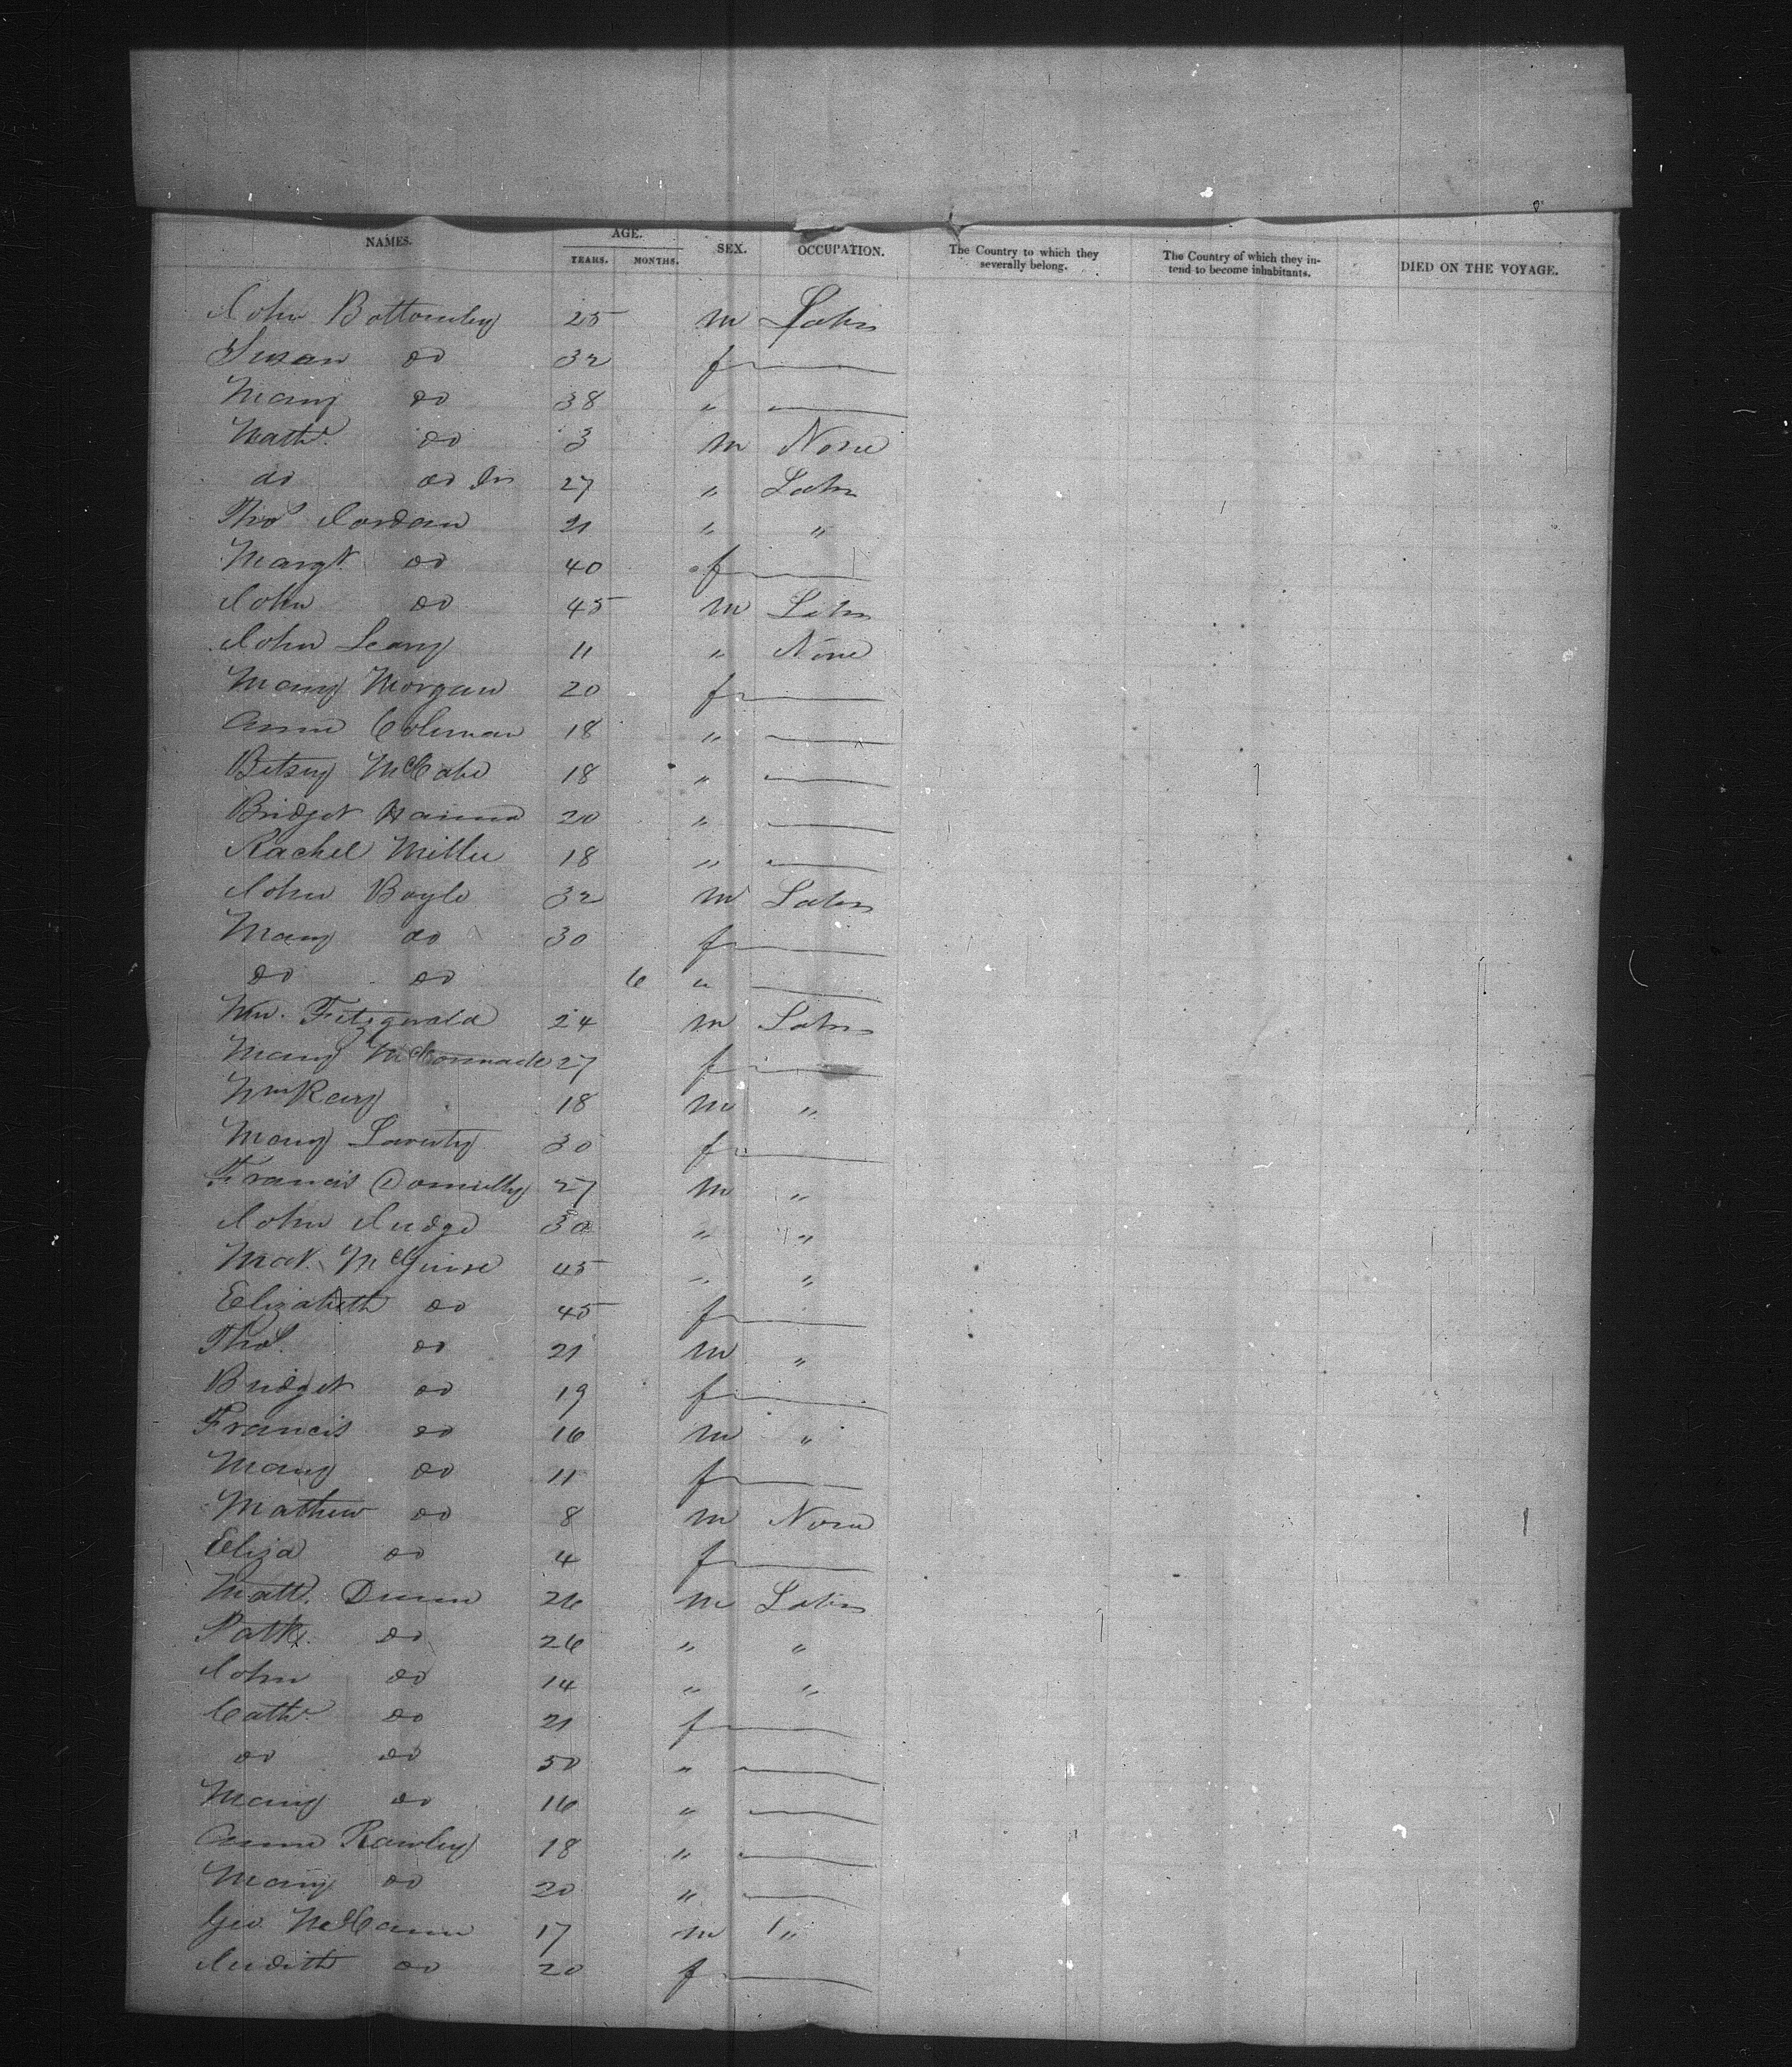 NAMES. AGE. YEARS. MONTHS. SEX. OCCUPATION. The Country to which they severally belong. The Country of which they intend to become inhabitants. DIED ON THE VOYAGE.
John Bottomley 25 m Labr
Susan do 32 f
Mary do 38 "
Nathl. do 3 m None
do do Jn 27 " Labr
Thos Jordan 21 " "
Margt. do 40 f
John do 45 m Labr
John Leary 11 " None
Mary Morgan 20 f
Anne Coleman 18 "
Betsey McCabe 18 "
Bridget Hanna 20 "
Rachel Miller 18 "
John Boyle 32 m Labr
Mary do 30 f
do do 6 "
Wm. Fitzgerald 24 m Labr
Mary McCormack 27 f
Wm Rary 18 m "
Mary Laverty 30 f
Francis Donnelly 27 m "
John Judge 30 " "
Mat. McGuire 45 " "
Elizabeth do 45 f
Thos. do 21 m "
Bridget do 19 f
Francis do 16 m "
Mary do 11 f
Mathew do 8 m None
Eliza do 4 f
Matt. Dunn 26 m Labr
Patk. do 26 " "
John do 14 " "
Cathe. do 21 f
do do 50 "
Mary do 16 "
Anne Rawley 18 "
Mary do 20 "
Geo. McCann 17 m "
Judith do 20 f